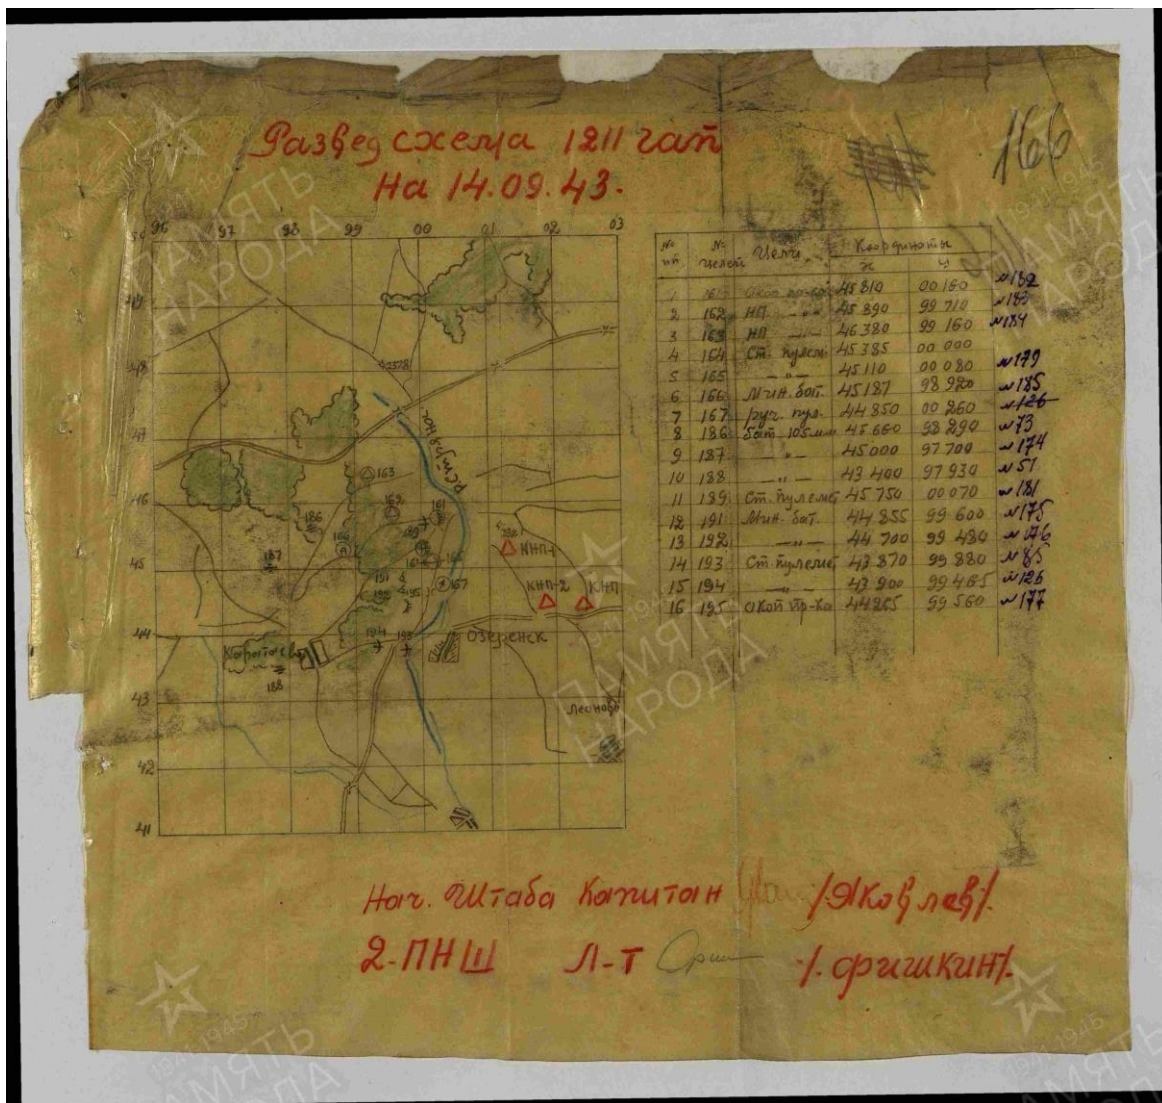 166
Развед схема 1211 гап
На 14.09.43.
96 97 98 99 00 01 02 03
50
49
48
47
46
45
44
43
42
41
163
162
161
186
189
187
КНП-1
191
192
195
167
КНП-2
КНП
194
193
Озеренск
188
№ пп № целей Цели Координаты
х у
1 161 Окоп пр-ка 45810 00160 №182
2 162 НП —„— 45890 99710 №183
3 163 НП —„— 46380 99160 №184
4 164 Ст. пулем. 45385 00000
5 165 —„— 45110 00080 №179
6 166 Мин. бат. 45187 98920 №185
7 167 руч. пул. 44850 00260 №126
8 186 бат 105мм 45660 98290 №73
9 187 —„— 45000 97700 №174
10 188 —„— 43400 97930 №51
11 189 Ст. пулемет 45750 00070 №181
12 191 Мин. бат. 44855 99600 №175
13 192 —„— 44700 99480 №176
14 193 Ст пулемет 43870 99880 №85
15 194 —„— 43900 99465 №126
16 195 Окоп пр-ка 44865 99560 №177
Нач. Штаба Капитан /Яковлев/.
2-ПНШ Л-т /.Фришкин/.
ПАМЯТЬ НАРОДА
1941-1945